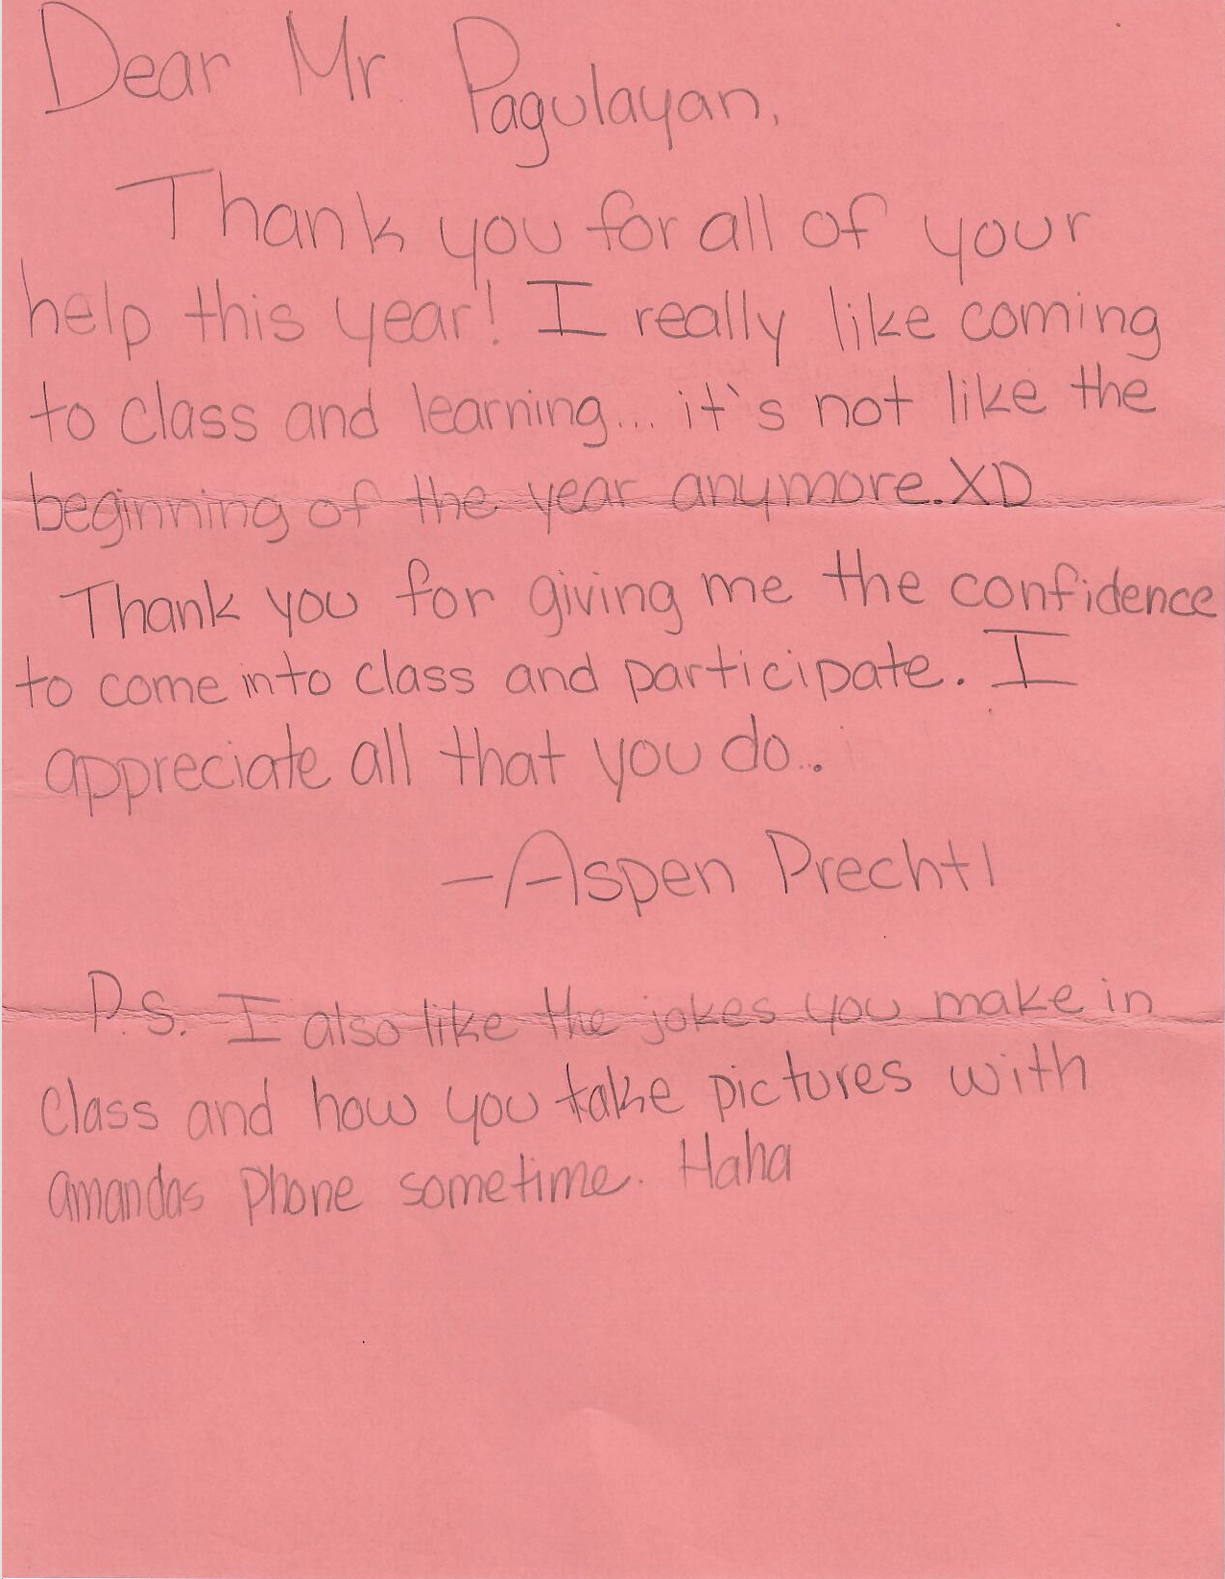 Dear Mr Pagulayan,
Thank you for all of your
help this year! I really like coming
to class and learning... it's not like the
beginning of the year anymore. XD
Thank you for giving me the confidence
to come into class and participate. I
appreciate all that you do...
-Aspen Prechtl
P.S. I also like the jokes you make in
class and how you take pictures with
amandas phone sometime. Haha